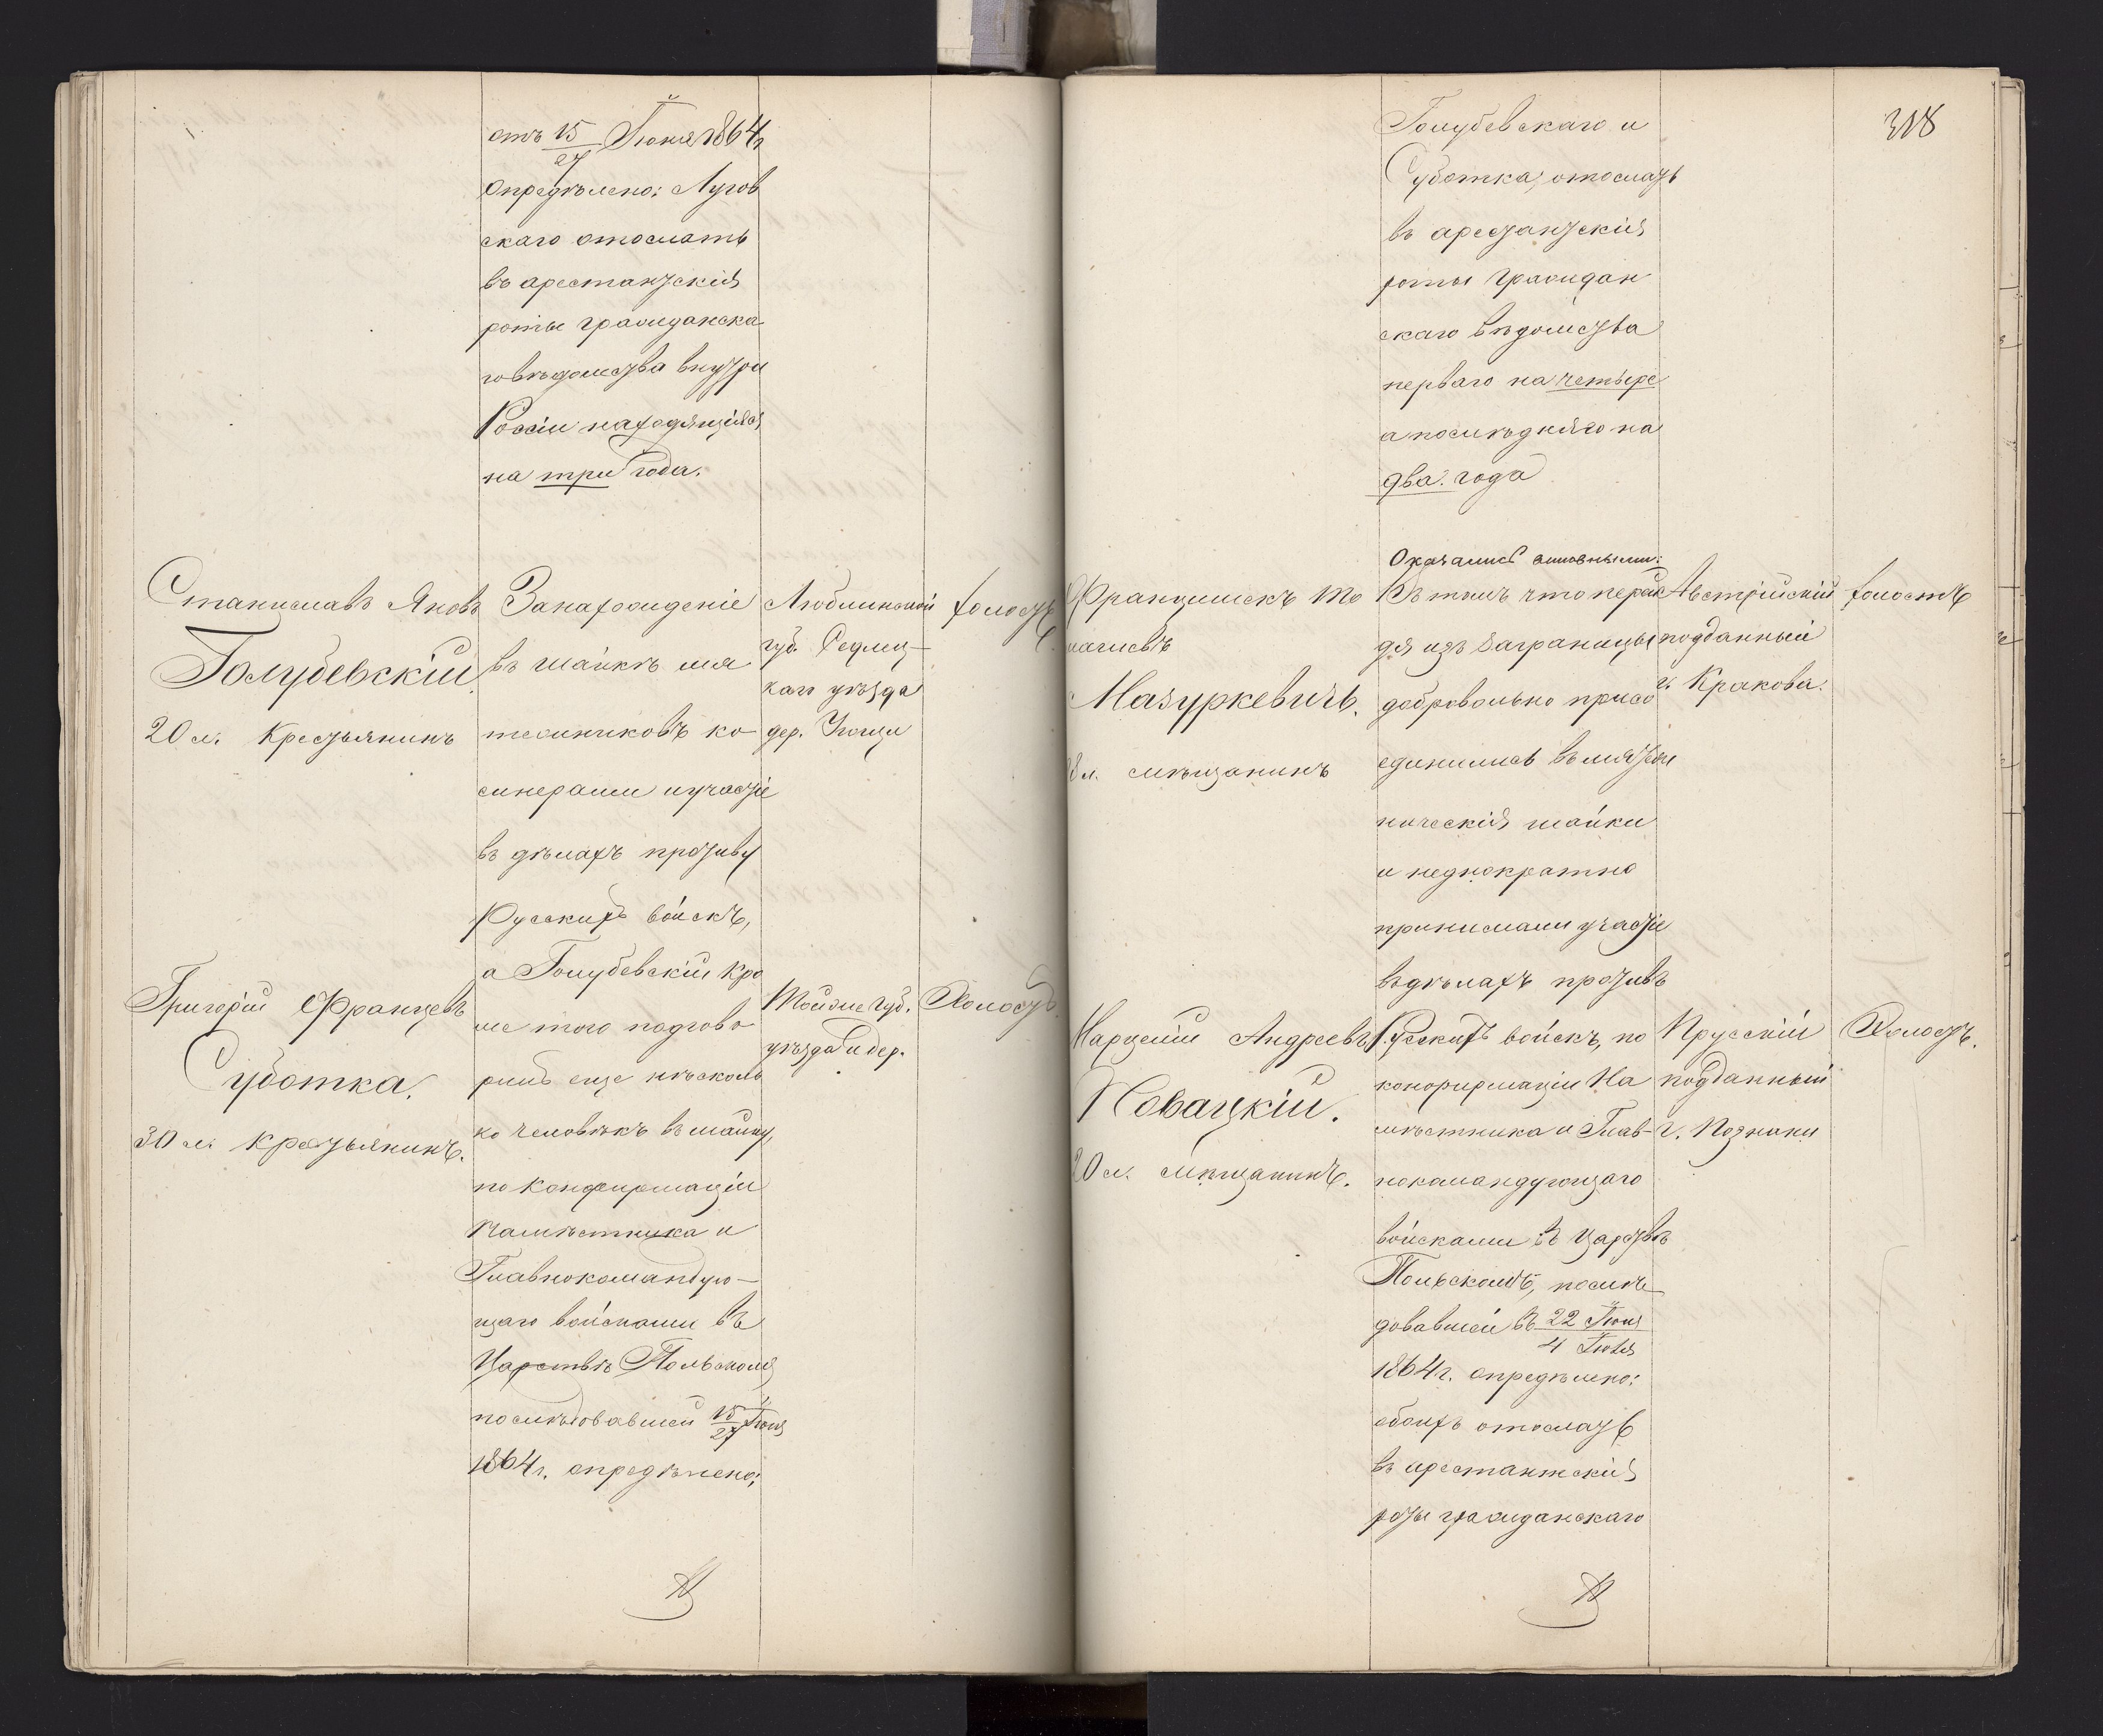 отъ 15/27 Іюня 1864 г
Опредѣлено: Лугов
скаго отослать
въ арестантскія
роты гражданска
го вѣдомства внутри
Россіи находящіяся
на три года.
Станиславъ Яновъ
Голубевскій
20 л. Крестьянинъ
За нахожденіе
въ шайкѣ мя
тежниковъ ко
синерами и участіе
въ дѣлахъ противу
Русскихъ войскъ,
а Голубевскій кро
ме того подгово
рилъ еще нѣсколь
ко человѣкъ въ шайку,
по Конфирмаціи
Намѣстника и
Главнокомандую-
щаго войсками въ
Царствѣ Польскомъ
послѣдовавшей 15/27 Іюня
1864 г. опредѣлено:
Люблинской
губ. Седлец-
каго уѣзда
дер.
холостъ
Григорій Францевъ
Суботка.
30 л. крестьянинъ.
Той же губ.
уѣзда и дер.
Холостъ.
318
Голубевскаго и
Суботка, отослать
въ арестантскія
роты граждан
скаго вѣдомства
перваго на четыре
а послѣдняго на
два года
Францишекъ То
машевъ
Мазуркевичъ.
л. мѣщанинъ
Оказались виновными:
Въ томъ что перей
дя изъ заграницы
добровольно присо
единились въ мятеж
ническія шайки
и неднократно
принимали участіе
въ дѣлахъ противъ
Русскихъ войскъ, по
конфирмаціи На
мѣстника и Глав-
нокомандующаго
войсками въ Царствѣ
Польскомъ, послѣ
довавшей въ 22 Іюня/4 Іюля
1864 г. опредѣлено:
обоихъ отослать
въ арестантскія
роты гражданскаго
Австрійскій
подданный
г. Кракова.
холостъ
Нарцелій Андреевъ
Новацкій.
20 л. мѣщанинъ.
Прусскій
подданный
г. Познани
Холостъ.